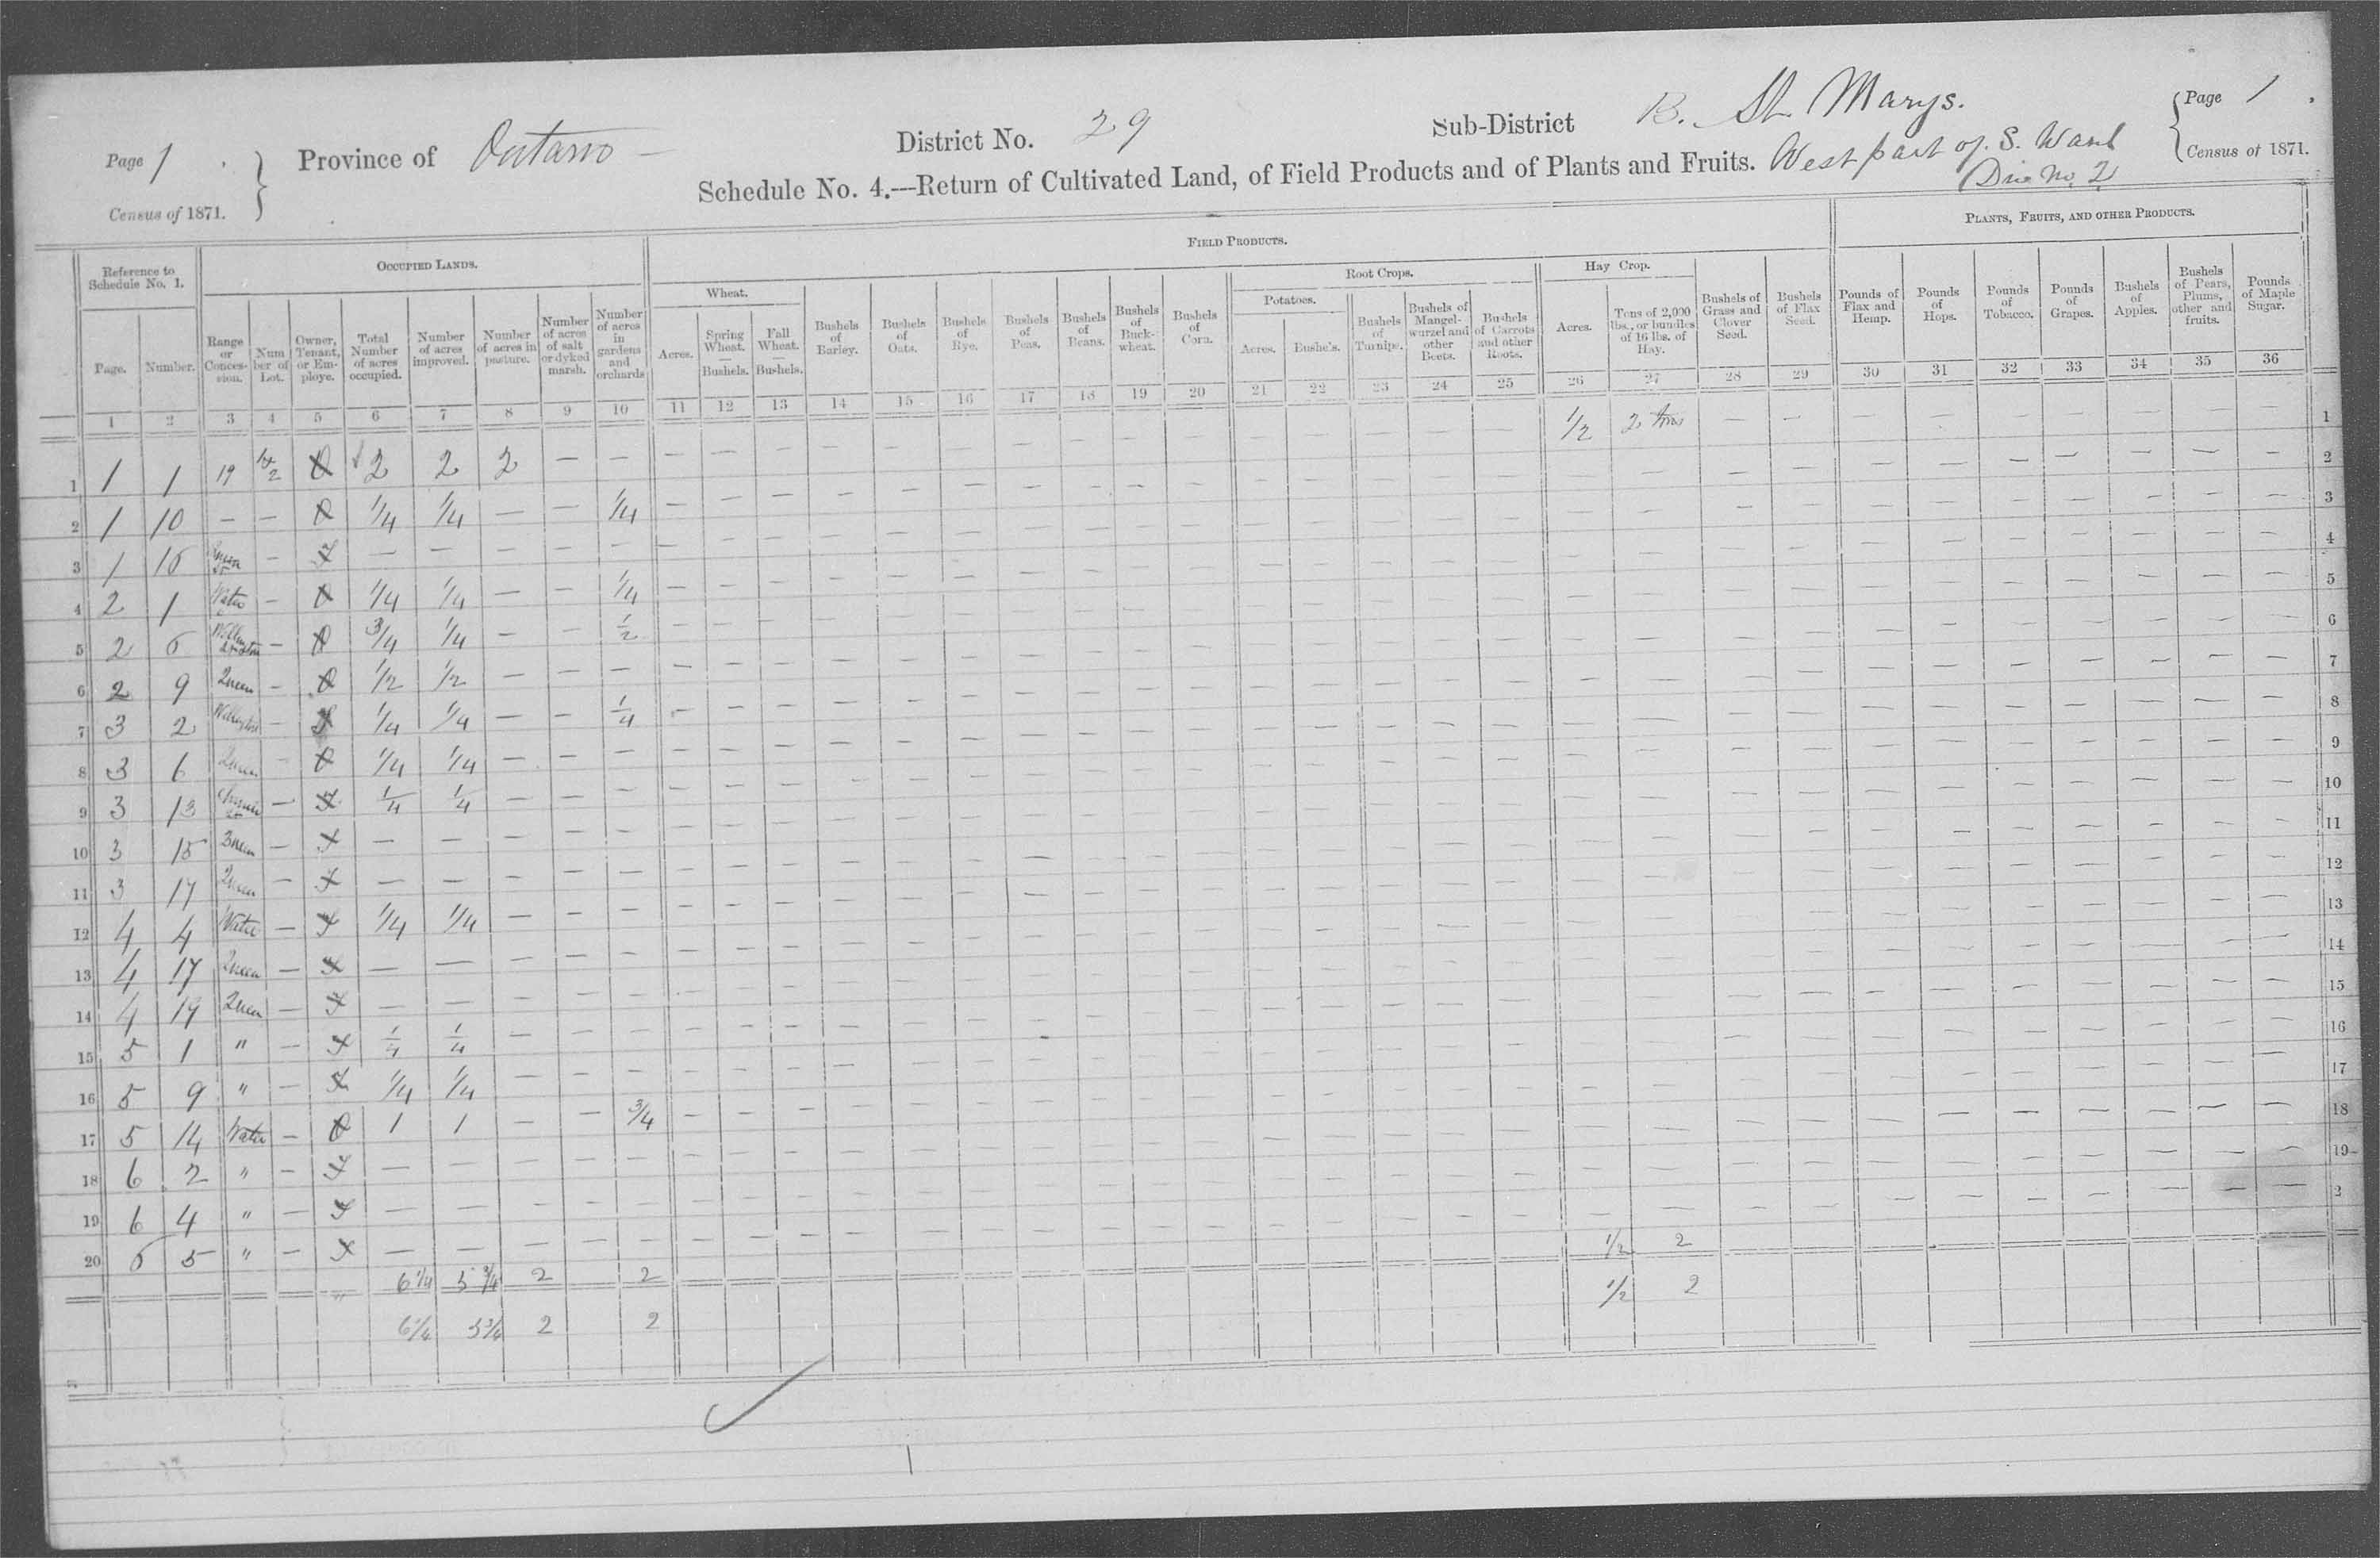 Page 1 . Census of 1871.
Province of Ontario –
District No. 29
Sub-District B. St Marys.
West part of S. Ward
Div No. 2
Page 1 . Census of 1871.
Schedule No. 4.---Return of Cultivated Land, of Field Products and of Plants and Fruits.
Reference to Schedule No. 1.
OCCUPIED LANDS.
FIELD PRODUCTS.
PLANTS, FRUITS, AND OTHER PRODUCTS.
Wheat.
Root Crops.
Potatoes.
Hay Crop.
Page.
Number.
Range or Concession.
Number of Lot.
Owner, Tenant, or Employe.
Total Number of acres occupied.
Number of acres improved.
Number of acres in pasture.
Number of acres of salt or dyked marsh.
Number of acres in gardens and orchards
Acres.
Spring Wheat. — Bushels.
Fall Wheat. — Bushels.
Bushels of Barley.
Bushels of Oats.
Bushels of Rye.
Bushels of Peas.
Bushels of Beans.
Bushels of Buckwheat.
Bushels of Corn.
Acres.
Bushels.
Bushels of Turnips.
Bushels of Mangel-wurzel and other Beets.
Bushels of Carrots and other Roots.
Acres.
Tons of 2,000 lbs., or bundles of 16 lbs. of Hay.
Bushels of Grass and Clover Seed.
Bushels of Flax Seed.
Pounds of Flax and Hemp.
Pounds of Hops.
Pounds of Tobacco.
Pounds of Grapes.
Bushels of Apples.
Bushels of Pears, Plums, other and fruits.
Pounds of Maple Sugar.
1 2 3 4 5 6 7 8 9 10 11 12 13 14 15 16 17 18 19 20 21 22 23 24 25 26 27 28 29 30 31 32 33 34 35 36
1 1 1 19 O 2 2 2 — — 1/2 2 tons 1
2 1 10 — — O 1/4 1/4 — — 1/4 2
3 1 15 — T — — — — — 3
4 2 1 Water — O 1/4 1/4 — — 1/4 4
5 2 6 Wellington — O 3/4 1/4 — — 1/2 5
6 2 9 Queen — O 1/2 1/2 — — — 6
7 3 2 Wellington — T 1/4 1/4 — — 1/4 7
8 3 6 Queen — O 1/4 1/4 — — — 8
9 3 13 — T 1/4 1/4 — — — 9
10 3 15 Queen — T — — — — — 10
11 3 17 Queen — T — — — — — 11
12 4 4 Water — T 1/4 1/4 — — — 12
13 4 17 Queen — T — — — — — 13
14 4 19 Queen — T — — — — — 14
15 5 1 " — T 1/4 1/4 — — — 15
16 5 9 " — T 1/4 1/4 — — — 16
17 5 14 Water — O 1 1 — — 3/4 17
18 6 2 " — T — — — — — 18
19 6 4 " — T — — — — — 19
20 6 5 " — T — — — — — 2
6 1/4 5 3/4 2 2 1/2 2
6 1/4 5 3/4 2 2 1/2 2